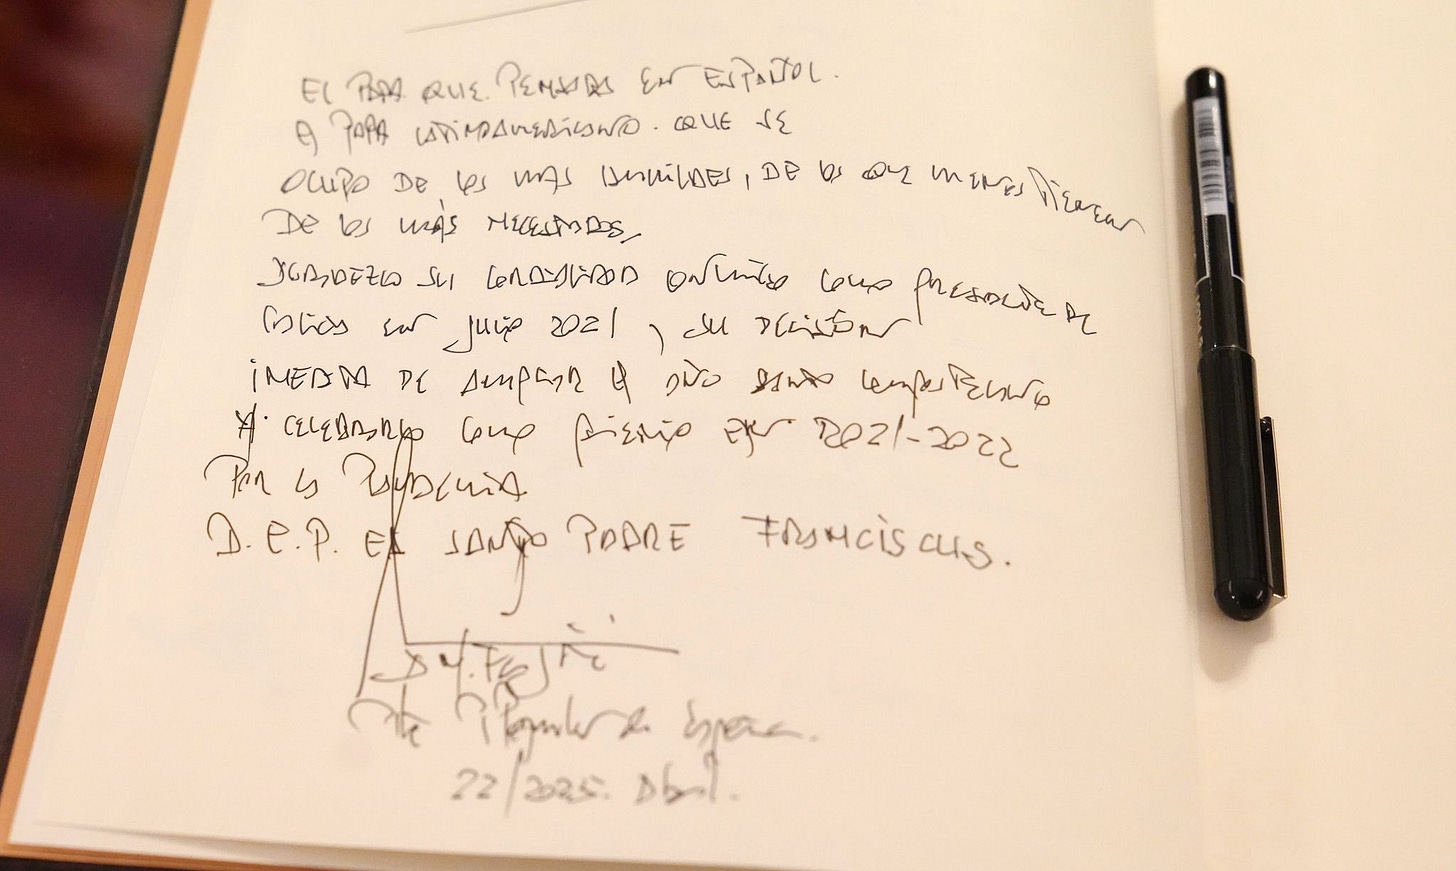 EL PAPA QUE PENSABA EN ESPAÑOL.
EL PAPA LATINOAMERICANO. QUE SE
OCUPÓ DE LOS MÁS HUMILDES, DE LOS QUE MENOS TIENEN
DE LOS MÁS NECESITADOS.
AGRADEZCO SU CORDIALIDAD CONMIGO COMO PRESIDENTE DE
GALICIA EN JULIO 2021, SU DECISIÓN
INÉDITA DE AMPLIAR EL AÑO SANTO COMPOSTELANO
Y CELEBRARLO COMO BIENIO 2021-2022
POR LA PANDEMIA
D.E.P. EL SANTO PADRE FRANCISCUS.
Pte P. Popular de España.
22/2025. Abril.